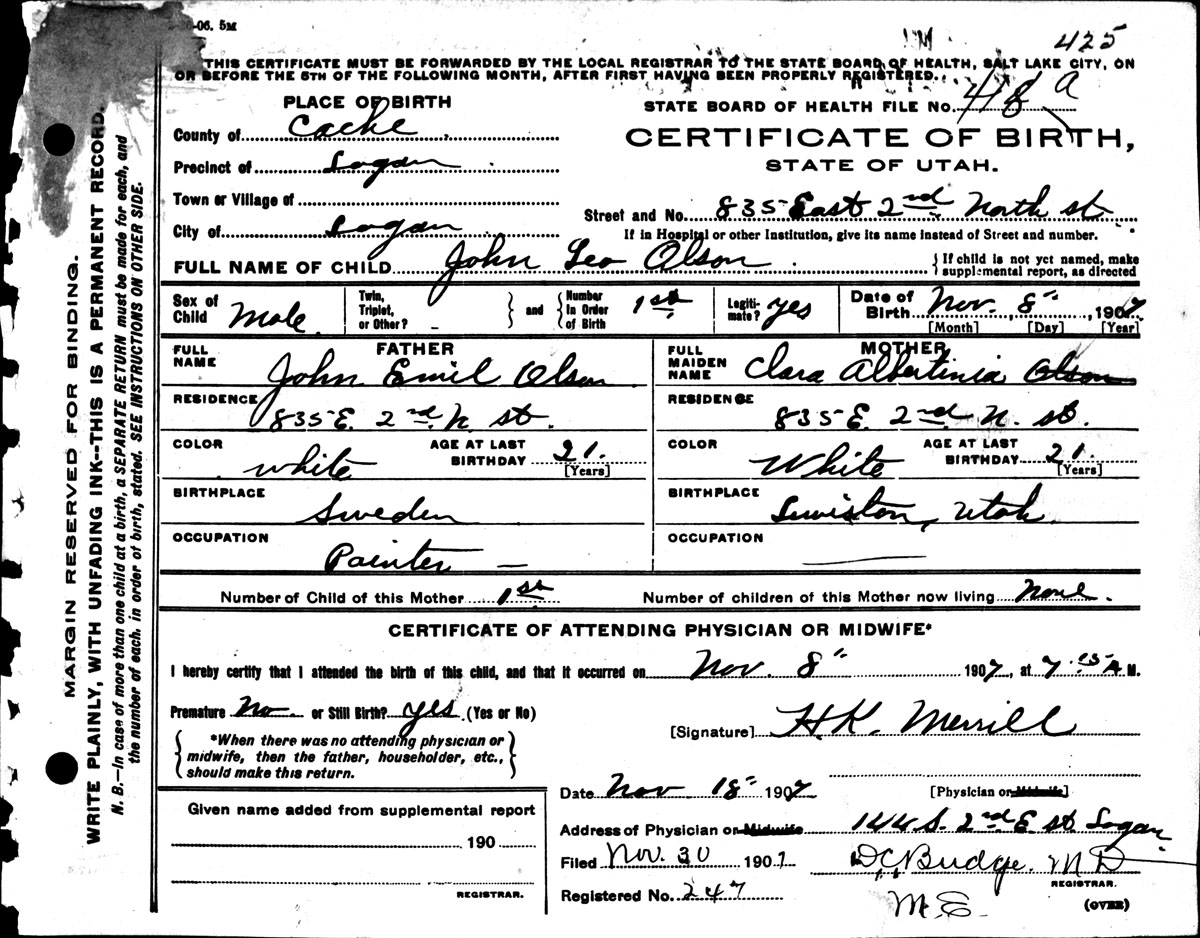 -06. 5M
425
THIS CERTIFICATE MUST BE FORWARDED BY THE LOCAL REGISTRAR TO THE STATE BOARD OF HEALTH, SALT LAKE CITY, ON
OR BEFORE THE 5TH OF THE FOLLOWING MONTH, AFTER FIRST HAVING BEEN PROPERLY REGISTERED.
STATE BOARD OF HEALTH FILE No. 418 a
CERTIFICATE OF BIRTH,
STATE OF UTAH.
PLACE OF BIRTH
County of Cache
Precinct of Logan
Town or Village of
City of Logan
Street and No. 835 East 2nd North st
If in Hospital or other Institution, give its name instead of Street and number.
FULL NAME OF CHILD John Leo Olson { If child is not yet named, make supplemental report, as directed
Sex of Child Male Twin, Triplet, or Other? - and Number In Order of Birth 1st Legitimate? yes Date of Birth Nov. 8", 1907
[Month] [Day] [Year]
FATHER
FULL NAME John Emil Olson
RESIDENCE 835 E. 2nd N. st.
COLOR White AGE AT LAST BIRTHDAY 21. [Years]
BIRTHPLACE Sweden
OCCUPATION Painter —
MOTHER
FULL MAIDEN NAME Clara Albertinia Olson
RESIDENCE 835 E. 2nd N. st.
COLOR White AGE AT LAST BIRTHDAY 21. [Years]
BIRTHPLACE Lewiston, Utah.
OCCUPATION —
Number of Child of this Mother 1st Number of children of this Mother now living None.
CERTIFICATE OF ATTENDING PHYSICIAN OR MIDWIFE*
I hereby certify that I attended the birth of this child, and that it occurred on Nov. 8" 1907, at 7 15 A M.
Premature No. or Still Birth? yes (Yes or No)
*When there was no attending physician or
midwife, then the father, householder, etc.,
should make this return.
[Signature] H.K. Merrill
[Physician or Midwife]
Given name added from supplemental report
190
REGISTRAR.
Date Nov. 18" 1907
Address of Physician or Midwife 144 S. 2nd E st Logan
Filed Nov. 30 1907 D.C. Budge. M D
REGISTRAR.
Registered No. 247
M.E.
(OVER)
MARGIN RESERVED FOR BINDING.
WRITE PLAINLY, WITH UNFADING INK--THIS IS A PERMANENT RECORD.
N. B.—In case of more than one child at a birth, a SEPARATE RETURN must be made for each, and
the number of each, in order of birth, stated. SEE INSTRUCTIONS ON OTHER SIDE.